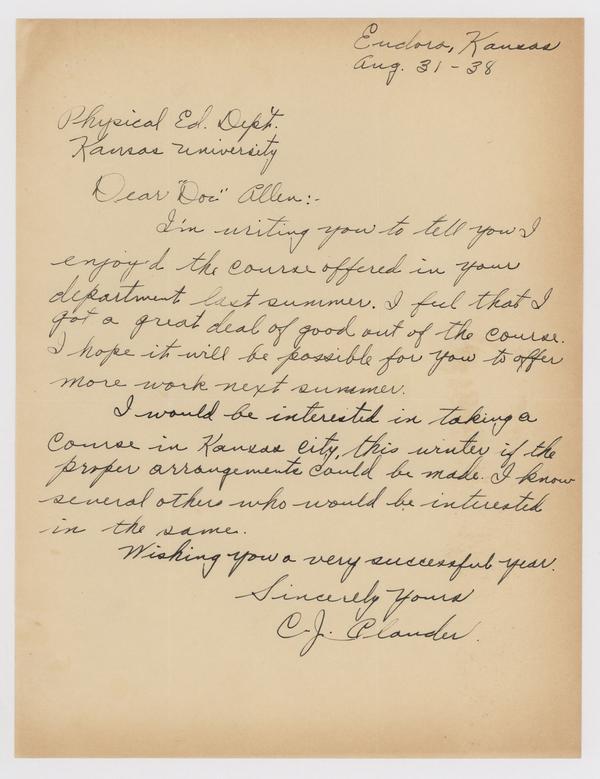 Eudora, Kansas
Aug. 31-38
Physical Ed. Dept.
Kansas University
Dear "Doc" Allen:-
I'm writing you to tell you I
enjoy'd the course offered in your
department last summer. I feel that I
got a great deal of good out of the course.
I hope it will be possible for you to offer
more work next summer.
I would be interested in taking a
course in Kansas city, this winter if the
proper arrangements could be made. I know
several others who would be interested
in the same.
Wishing you a very successful year.
Sincerely Yours
C. J. Clauder.